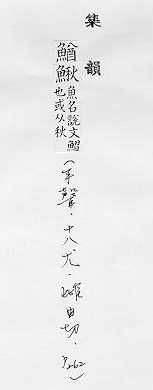 集韻
鰌鰍魚名說文鰼也或从秋(平聲.十八尤.雌由切.P262)